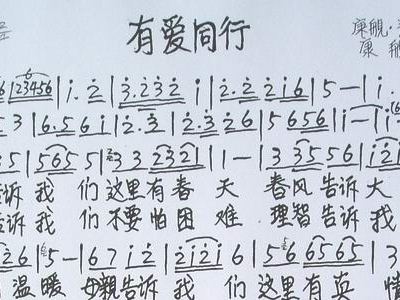 有爱同行
6 123456 | i . 2 | 3 . 2 3 2 i | 2 . 2 2 i 6 | 5 — | i .
5 3 | 6 . 5 6 i | 2 . 3 | 2 . 3 2 6 | 5 6 5 6 | i — | i
5 | 5 6 5 5 | 3 3 2 3 2 1 | 1 — | 3 3 5 5 6 | i 2 i
告诉 我 们 这里 有 春 天 春风 告诉 大
告诉 我 们 不要 怕 困 难 理智 告诉 我
2 6 | 5 — | 6 7 i 2 | 2 i 2 i 6 | 5 6 6 5 6 5 |
温暖 母亲 告诉 我 们 这里 有 真 情